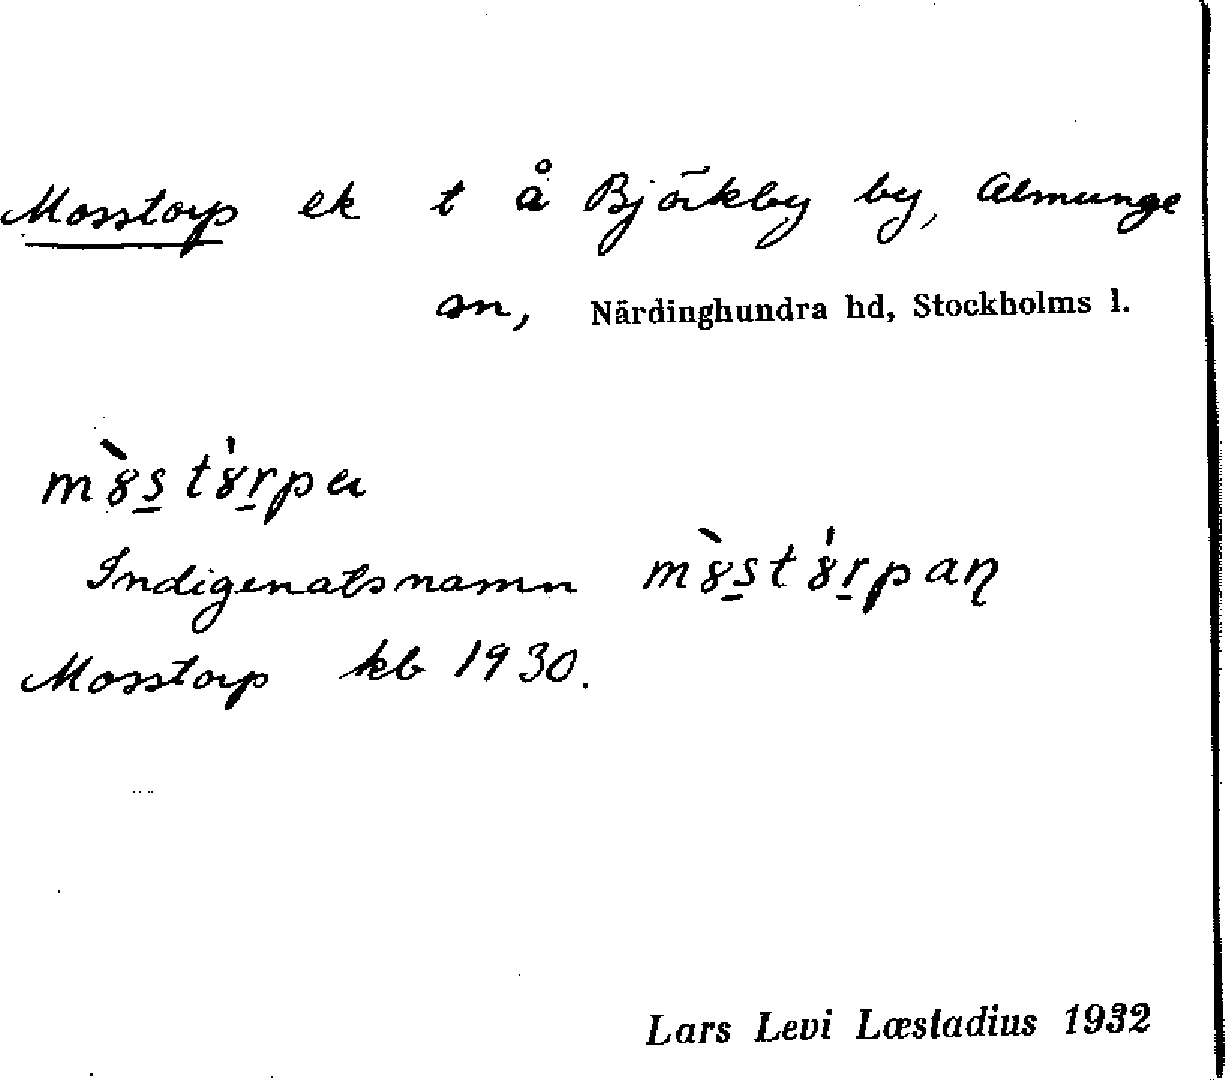 Mosstorp ek t å Björkby by, Almunge
sn, Närdinghundra hd, Stockholms l.
m̀ȣs̲t'ȣr̲pa
Indigenatsnamn m̀ȣs̲t'ȣr̲paɳ
Mosstorp kb 1930.
Lars Levi Læstadius 1932